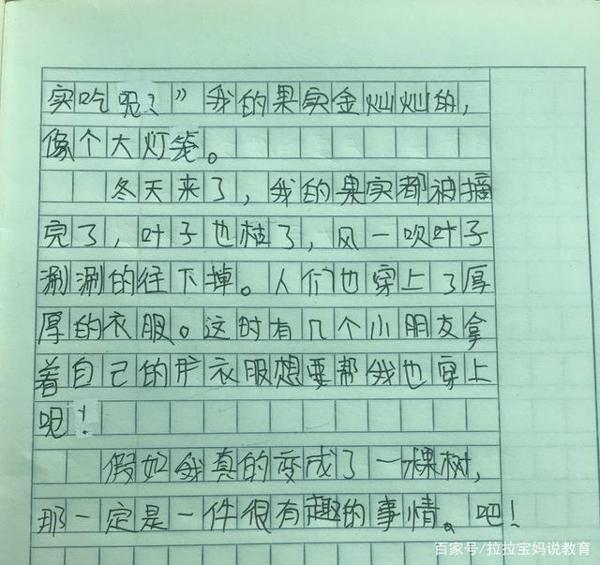 实吃呢？”我的果实金灿灿的，
像个大灯笼。
冬天来了，我的果实都被摘
完了，叶子也枯了，风一吹叶子
涮涮的往下掉。人们也穿上了厚
厚的衣服。这时有几个小朋友拿
着自己的衣服想要帮我也穿上
呢！
假如我真的变成了一棵树，
那一定是一件很有趣的事情。吧！
百家号/拉拉宝妈说教育